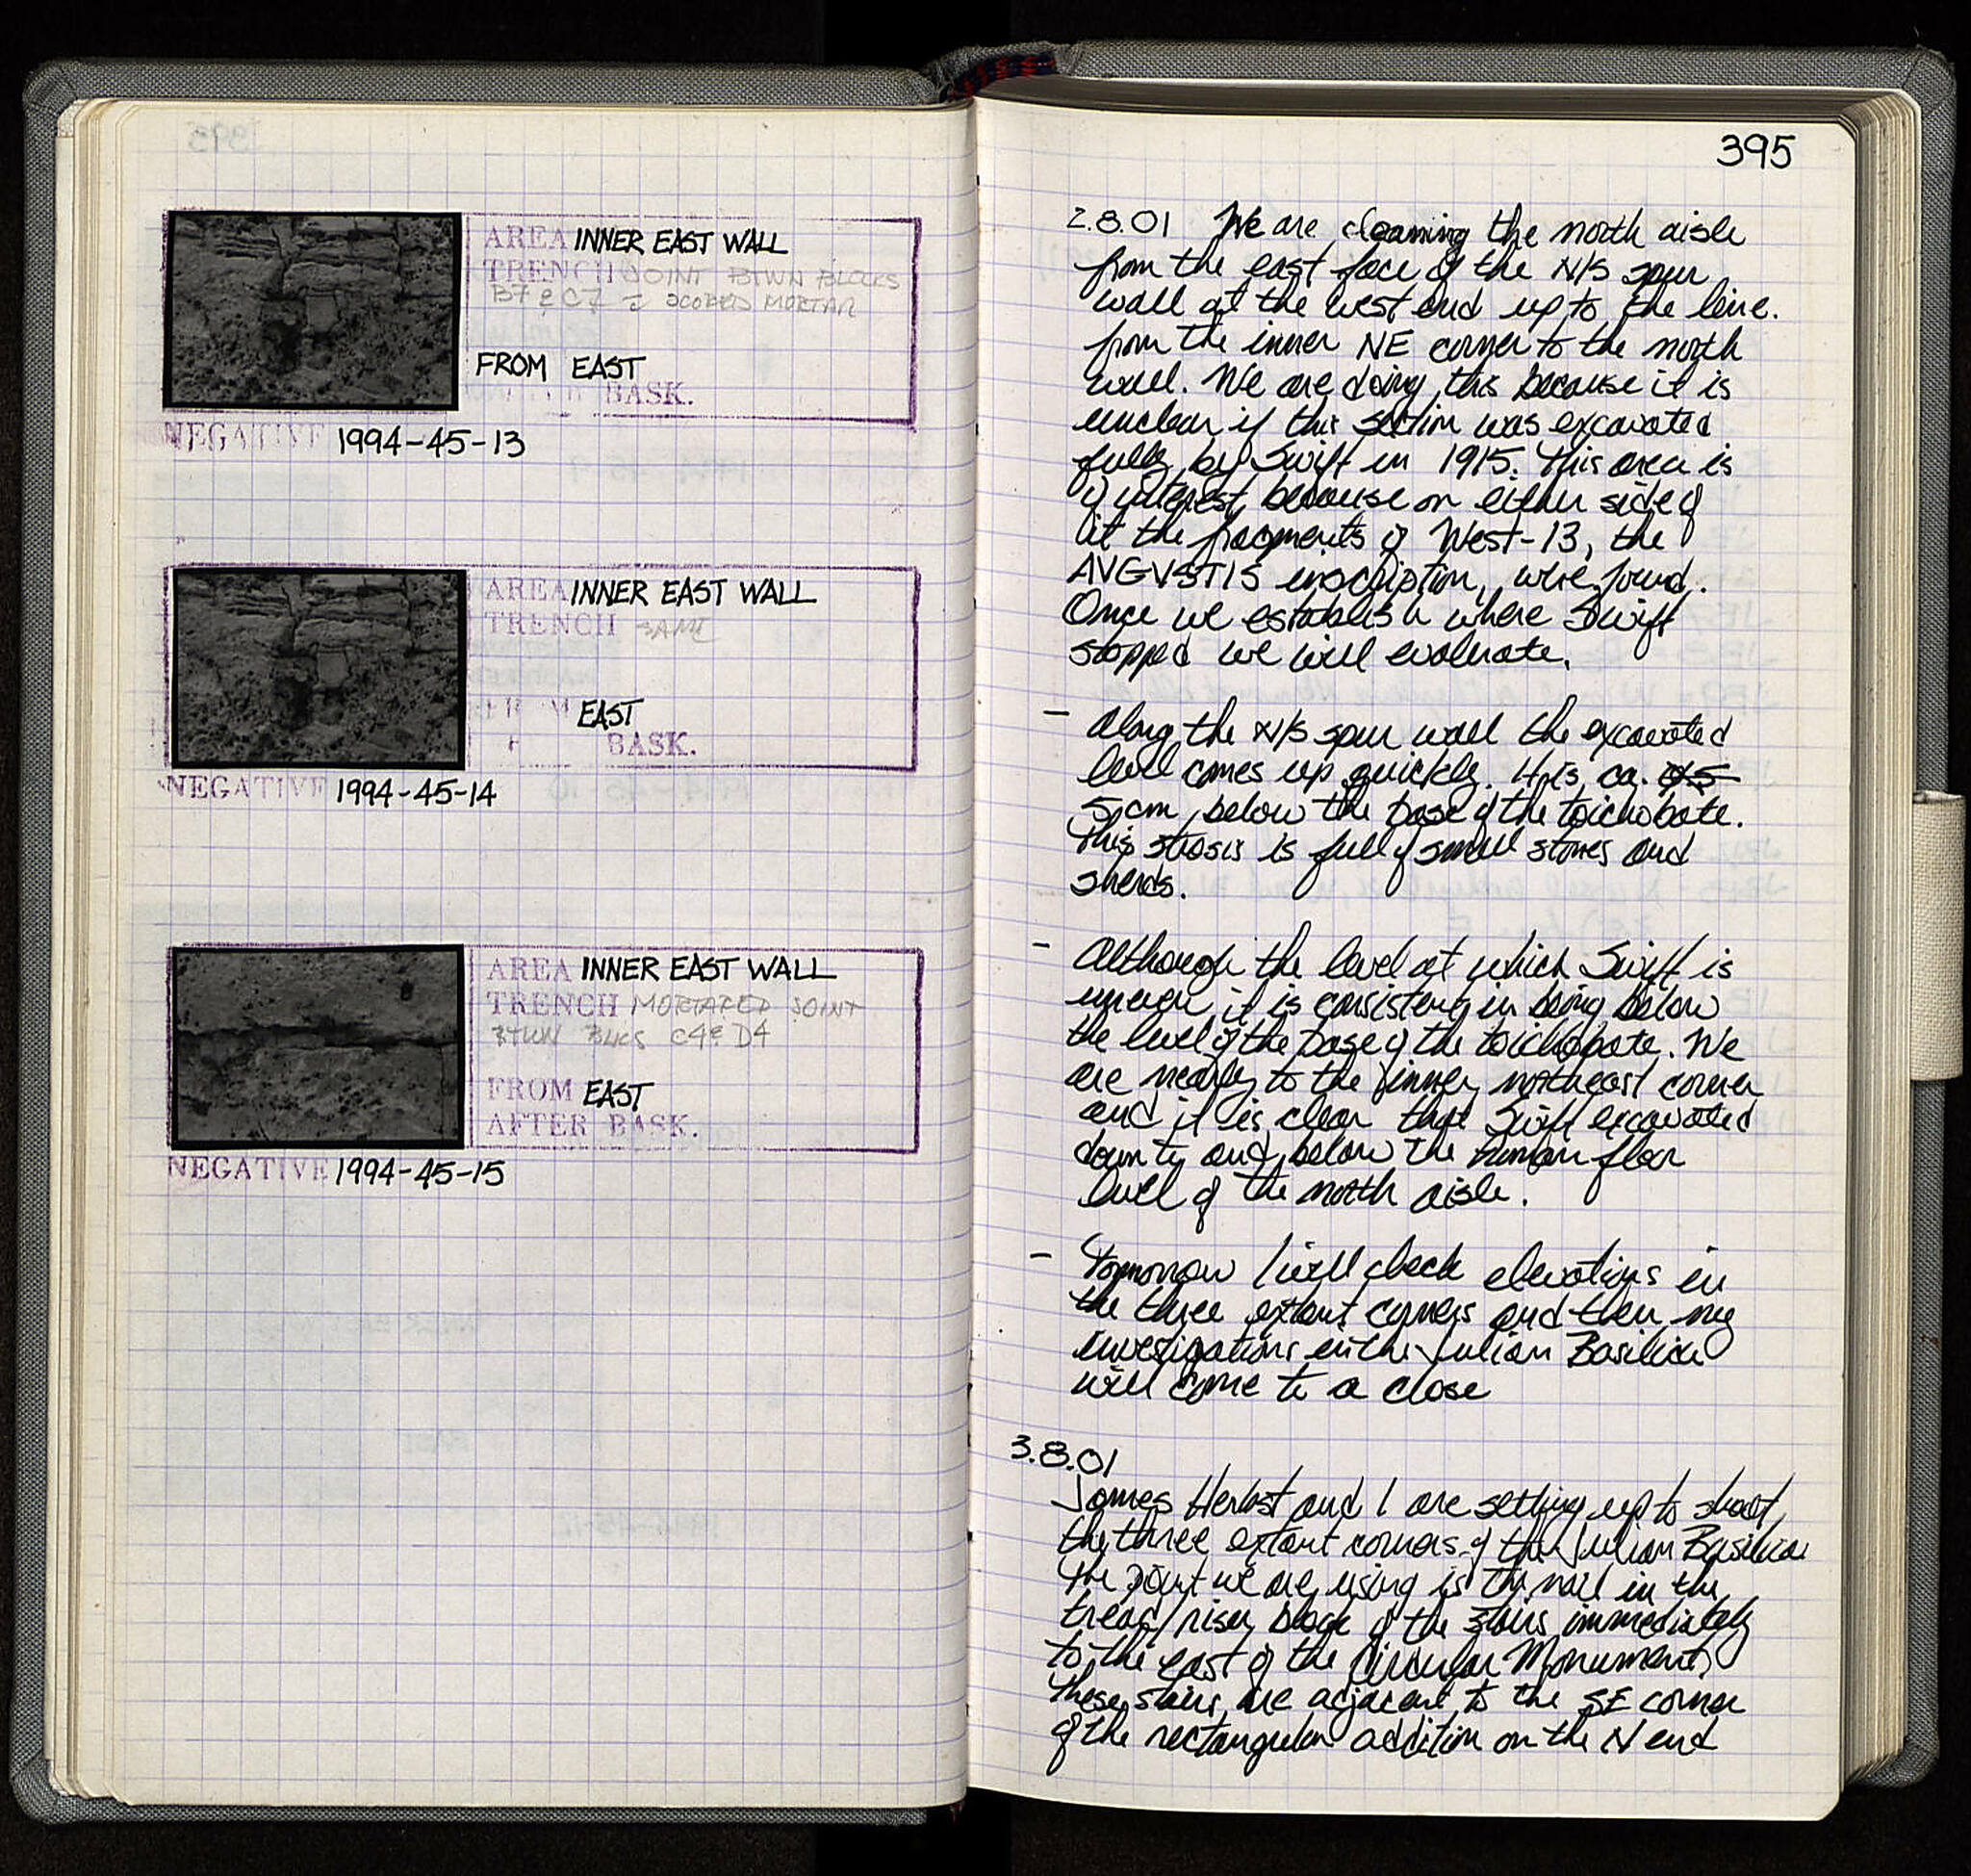 AREA INNER EAST WALL
TRENCH JOINT BTWN BLOCKS
B7 & C7 c̄ SCORED MORTAR
FROM EAST
BASK.
NEGATIVE 1994-45-13
AREA INNER EAST WALL
TRENCH SAME
EAST
BASK.
NEGATIVE 1994-45-14
AREA INNER EAST WALL
TRENCH MORTARED JOINT
BTWN BLKS C4 & D4
FROM EAST
AFTER BASK.
NEGATIVE 1994-45-15
395
2.8.01 We are cleaning the north aisle
from the east face of the N/S spur
wall at the west end up to the line
from the inner NE corner to the north
wall. We are doing this because it is
unclear if this section was excavated
fully by Swift in 1915. This area is
of interest because on either side of
it the fragments of West-13, the
AVGVSTIS inscription, were found.
Once we establish where Swift
stopped we will evaluate.
- Along the N/S spur wall the excavated
level comes up quickly. It is ca.
5 cm below the base of the toichobate.
This stasis is full of small stones and
sherds.
- Although the level at which Swift is
uneven it is consistent in being below
the level of the base of the toichobate. We
are nearly to the inner northeast corner
and it is clear that Swift excavated
down to and below the Roman floor
level of the north aisle.
- Tomorrow I will check elevations in
the three extant corners and then my
investigations in the Julian Basilica
will come to a close
3.8.01
James Herbst and I are setting up to shoot
the three extant corners of the Julian Basilica
The point we are using is the nail in the
tread/riser block of the stairs immediately
to the east of the Circular Monument.
These stairs are adjacent to the SE corner
of the rectangular addition on the N end